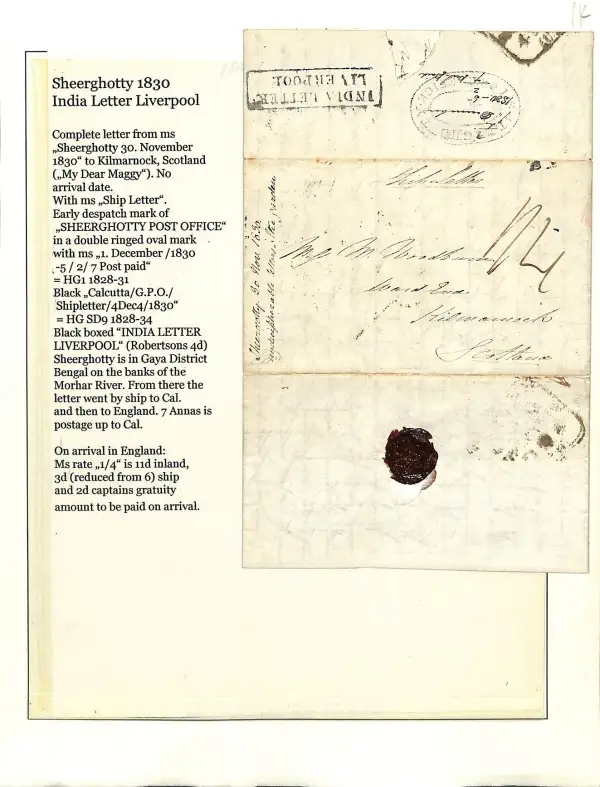 Sheerghotty 1830
India Letter Liverpool
Complete letter from ms
„Sheerghotty 30. November
1830“ to Kilmarnock, Scotland
(„My Dear Maggy“). No
arrival date.
With ms „Ship Letter“.
Early despatch mark of
„SHEERGHOTTY POST OFFICE“
in a double ringed oval mark
with ms „1. December /1830
-5 / 2/ 7 Post paid“
= HG1 1828-31
Black „Calcutta/G.P.O./
Shipletter/4Dec4/1830“
= HG SD9 1828-34
Black boxed “INDIA LETTER
LIVERPOOL“ (Robertsons 4d)
Sheerghotty is in Gaya District
Bengal on the banks of the
Morhar River. From there the
letter went by ship to Cal.
and then to England. 7 Annas is
postage up to Cal.
On arrival in England:
Ms rate „1/4“ is 11d inland,
3d (reduced from 6) ship
and 2d captains gratuity
amount to be paid on arrival.
INDIA LETTER
LIVERPOOL
Ship Letter
1/4
Kilmarnock
Scotland